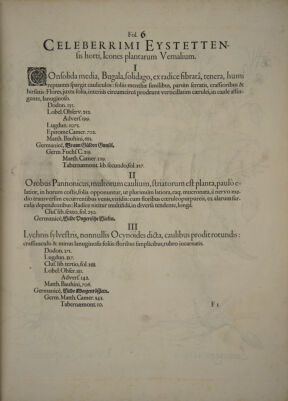 Fol. 6
CELEBERRIMI EYSTETTEN-
sis horti, Icones plantarum Vernalium.
I
COnsolida media, Bugula, solidago, ex radice fibrata, tenera, humi
reptantes spargit cauliculos: foliis mentae similibus, parum serratis, crassioribus &
hirsutis: Flores, juxta folia, interius circumcirca prodeunt verticillatim caerulei, in caule
lanuginoso.
Dodon. 135.
Lobel. Observ. 252.
Advers. 199.
Lugdun. 1075.
Epitome Camer. 702.
Matth. Bauhini, 682.
Germanicè,
Germ. Fuchs. C. 219.
Matth. Camer. 239.
Tabernaemont. lib. secundo, fol. 217.
II
Orobus Pannonicus, multorum caulium, striatorum est planta, paulo e-
latior, in horum costis, folia opponuntur, ut plurimum latiora, eaq; mucronata, à nervo me-
dio transversim excurrentibus venis, viridia: cum floribus caeruleopurpureis, ex alarum
dependentibus: Radice nititur multifida, in diversa tendente, longa.
Clus. lib. sexto, fol. 230.
Germanicè,
III
Lychnis sylvestris, nonnullis Ocynoides dicta, caulibus prodit rotundis:
crassiusculis & minus lanuginosis foliis: floribus simplicibus, rubro incarnatis.
Dodon. 171.
Lugdun. 817.
Clus. lib. tertio, fol. 288.
Lobel. Obser. 181.
Advers. 142.
Matth. Bauhini, 706.
Germanicè,
Germ. Matth. Camer. 242.
Tabernaemont. 10.
F 2